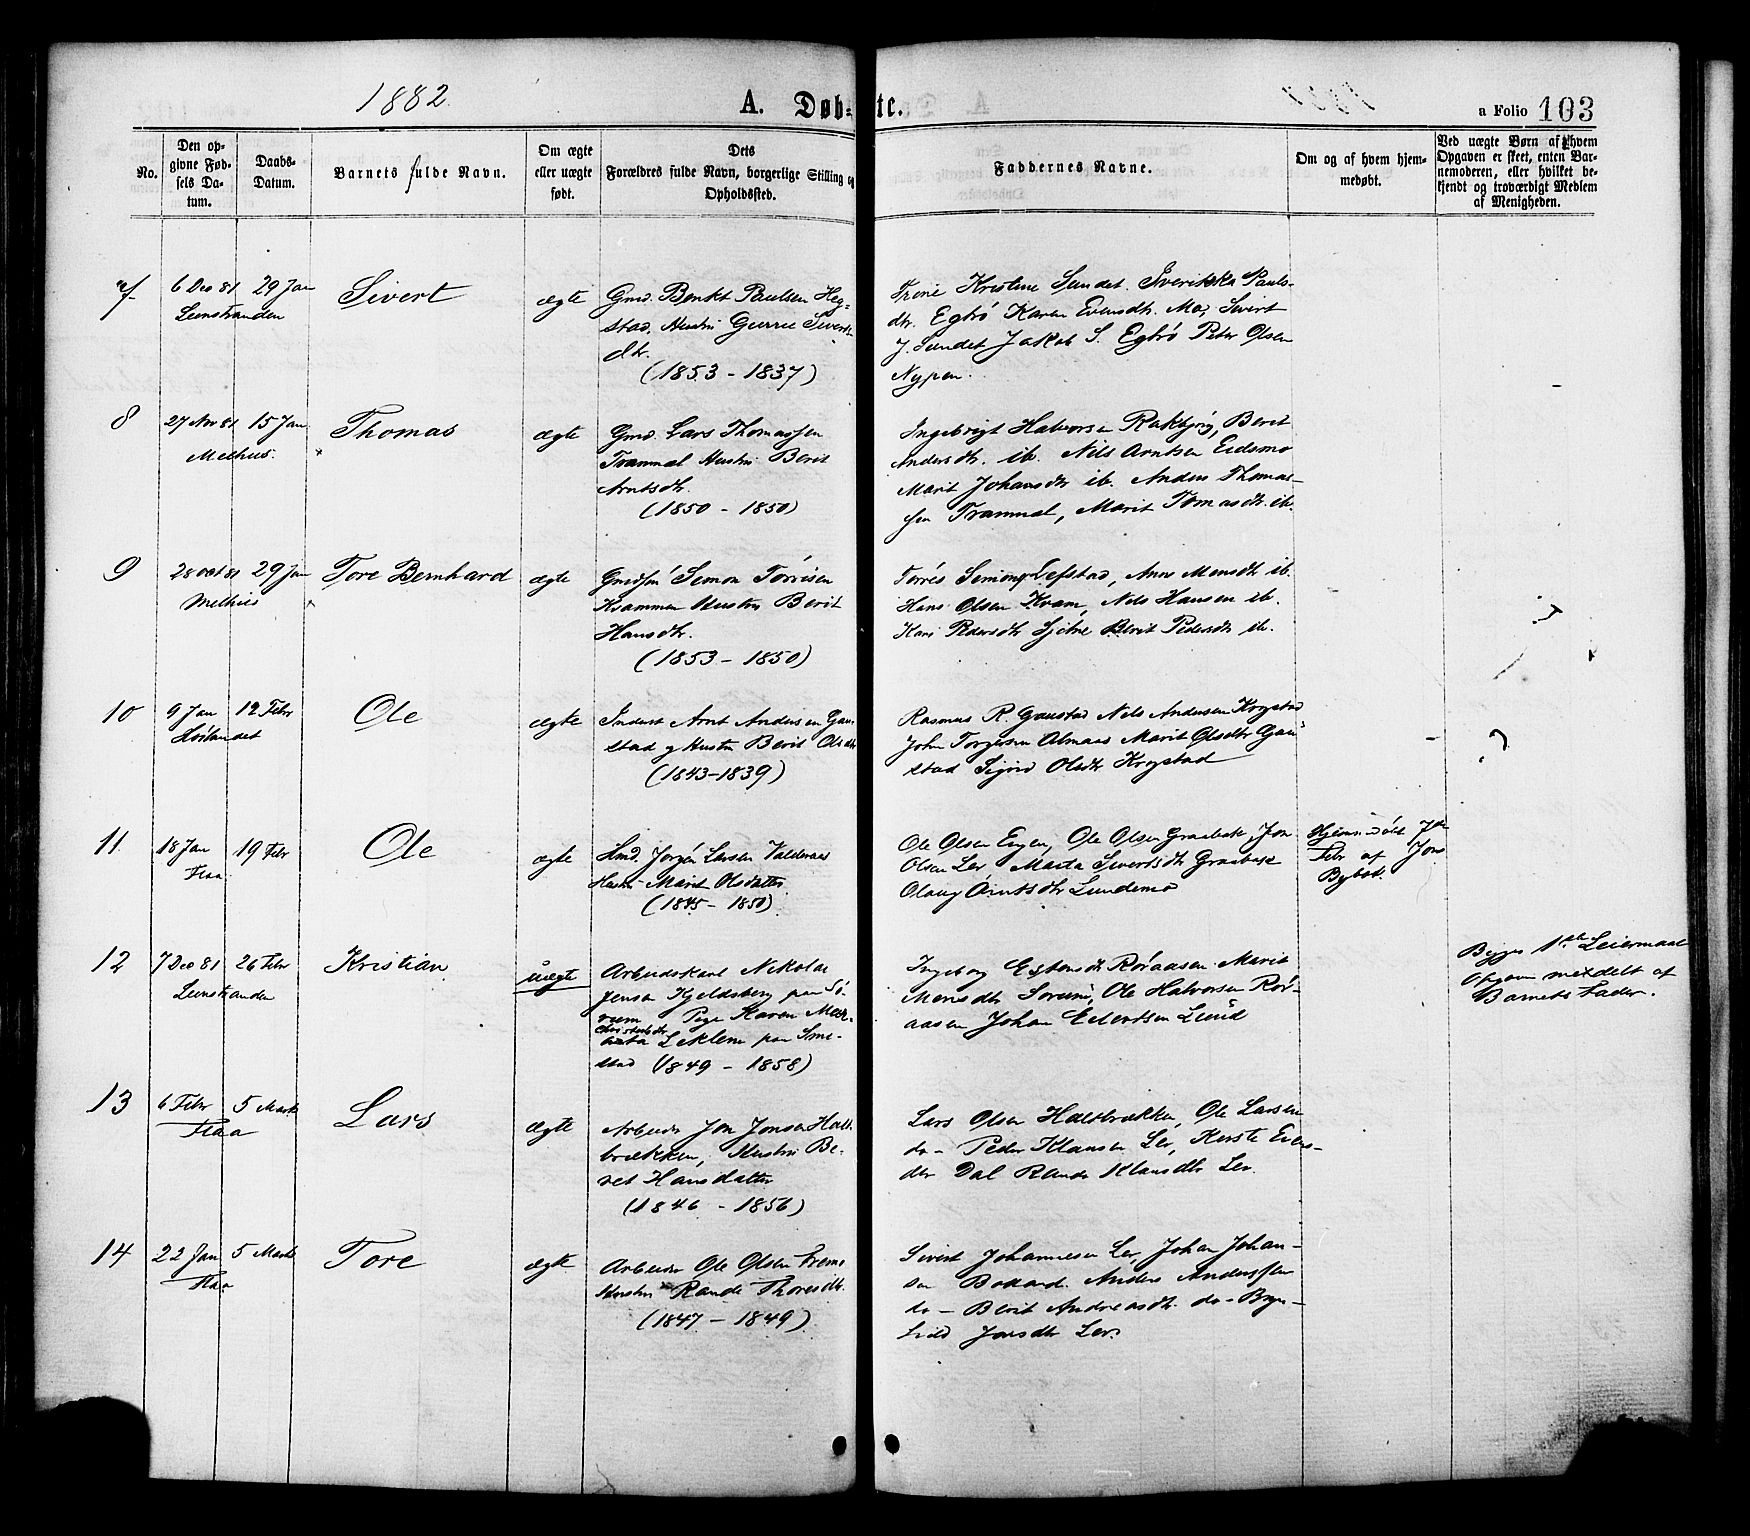 1882.
A. Døb-
te.
a Folio 103
No.
Den op-
givne Fød-
sels Da-
tum.
Daabs-
Datum.
Barnets fulde Navn.
Om ægte
eller uægte
født.
Dets
Forældres fulde Navn, borgerlige Stilling og
Opholdssted.
Faddernes Navne.
Om og af hvem hjem-
medøbt.
Ved uægte Børn af hvem
Opgaven er skeet, enten Bar-
nemoderen, eller hvilket be-
kjendt og troværdigt Medlem
af Menigheden.
7
6 Dec 81
Leinstranden
29 Jan
Sivert
ægte
Gmd. Benkt Paulsen Heg-
stad. Hustri Gurrie Siverts
dtr.
(1853 - 1837)
Trine Kristine Sundet. Pauls-
dtr. Eghø Karen Evensdtr. Mo, Sivert
J. Sundet Jakob S. Eghø Peter Olsen
Nypen.
8
27 Nov 81
Melhus.
15 Jan
Thomas
ægte
Gmd. Lars Thomassen
Trammal Hustri Berit
Arntsdtr.
(1850 - 1850)
Ingebrigt Halvorsen Rakbjørg, Berit
Andersdtr. ib. Nils Arntsen Eidsmo
Marit Johansdtr ib. Anders Thomas-
sen Trammal, Marit Tomasdtr. ib.
9
28 Oct 81
Melhus
29 Jan
Tore Bernhard
ægte
Simon Torrisen
Kvammen Hustru Berit
Hansdtr.
(1853 - 1850)
Torres Lefstad, Anne Monsdtr ib.
Hans Olsen Kvam, Nils Hansen ib.
Kari Pedersdtr Berit Pedersdtr ib.
10
9 Jan
Høilandet
12 Febr
Ole
ægte
Inderst Arnt Andersen Gau-
stad og Hustru Berit Olsdtr
(1843-1839)
Rasmus R. Gaustad Nils Andersen Krogstad
John Torgersen Almaas Marit Olsdtr Gau
stad Sigrid Olsdtr Krogstad
11.
18 Jan
Flaa.
19 Febr
Ole
ægte
Hmd. Jørgen Larsen Valdraas
Hustri Marit Olsdatter
(1845 - 1850)
Ole Olsen Engen, Ole Olsen Graabak Jon
Olsen Ler Marta Sivertsdtr Graabak
Olaug Arntsdtr Lundemo
Hjemmedøbt 7de
Febr af Jons
12
7 Dec 81
Leinstranden
26 Febr
Kristian
uægte
Arbeidskarl Nikolai
Jensen Kjeldsberg paa Sø-
rum Pige Karen Mar-
Christensdtr
eta Leklem paa Sme-
stad (1849 - 1858)
Ingeborg Estensdtr Røraasen. Marit
Monsdtr Sørum, Ole Halvorsen Rør-
aasen Johan Edertsen Lund
Begges 1ste Leiermaal
Opgaven meddelt af
Barnets Fader.
13
6 Febr
Flaa
5 Marts
Lars
ægte
Arbeider Jon Jonsen Halt-
brækken, Hustru Be-
ret Hansdatter
(1846 - 1856)
Lars Olsen Haltbrækken, Ole Larsen
do - Peder Klausen Ler, Kerste Evens-
dtr Dal Randi Klausdtr Ler.
14
22 Jan
Flaa
5 Marts
Tore
ægte
Arbeider Ole Olsen Fremo
Hustru Randi Thoresdtr.
(1847 - 1849)
Sivert Johannesen Ler, Johan Johan-
sen Anders Anderssen
do - Berit Andreasdtr. do - Bryn-
hild Jonsdtr Ler.